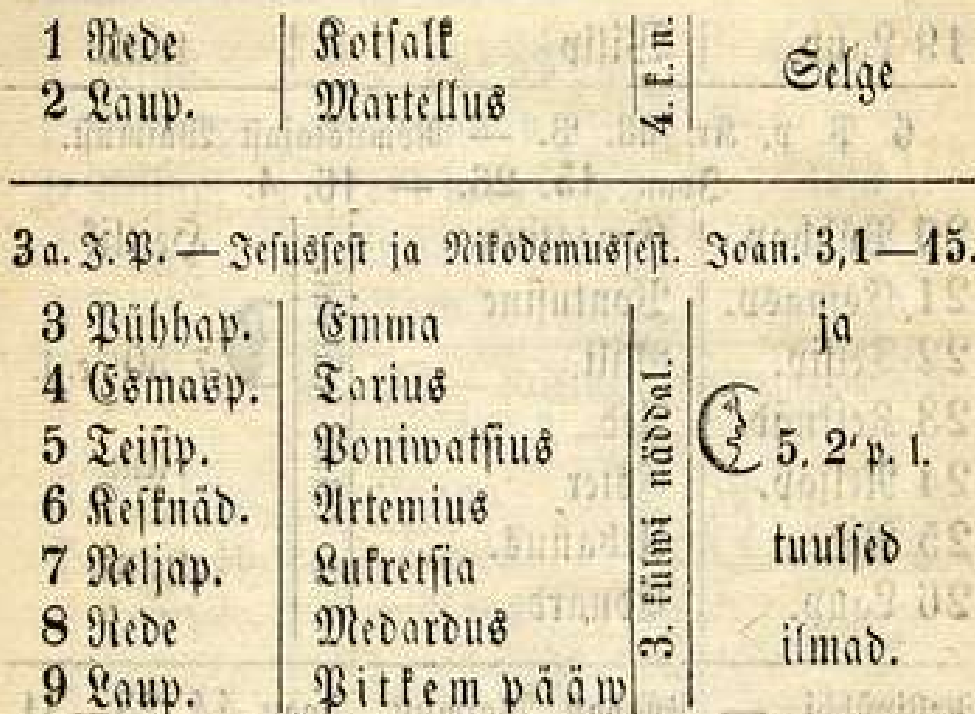 1 Rede Kotsalk 4. k. n. Selge
2 Laup. Martellus
3 a. J. P. — Jesussest ja Nikodemussest. Joan. 3,1—15.
3 Pühhap. Emma 3. külwi näddal. ja
4 Esmasp. Tarius
5 Teisip. Poniwatsius 5. 2' p. l.
6 Kesknäd. Artemius
7 Neljap. Lukretsia tuulsed
8 Rede Medardus ilmad.
9 Laup. Pitkem pääw